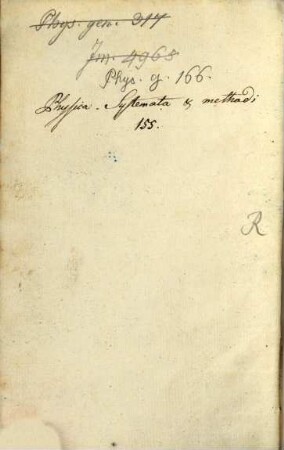 Phys. gen. 317
Im. 4965
Phys. g. 166.
Physica. Systemata & methodi
155.
R